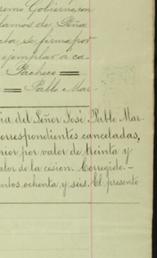 remo Gobierno, con
lamos de Peña
ata, se firma por
ejemplar a ca-
Pacheco
Pablo Mar-
ia del Señor José Pablo Mar-
correspondientes canceladas,
erior por valor de treinta y
valor de la cesion. Corregido.—
entos, ochenta y seis. El presente